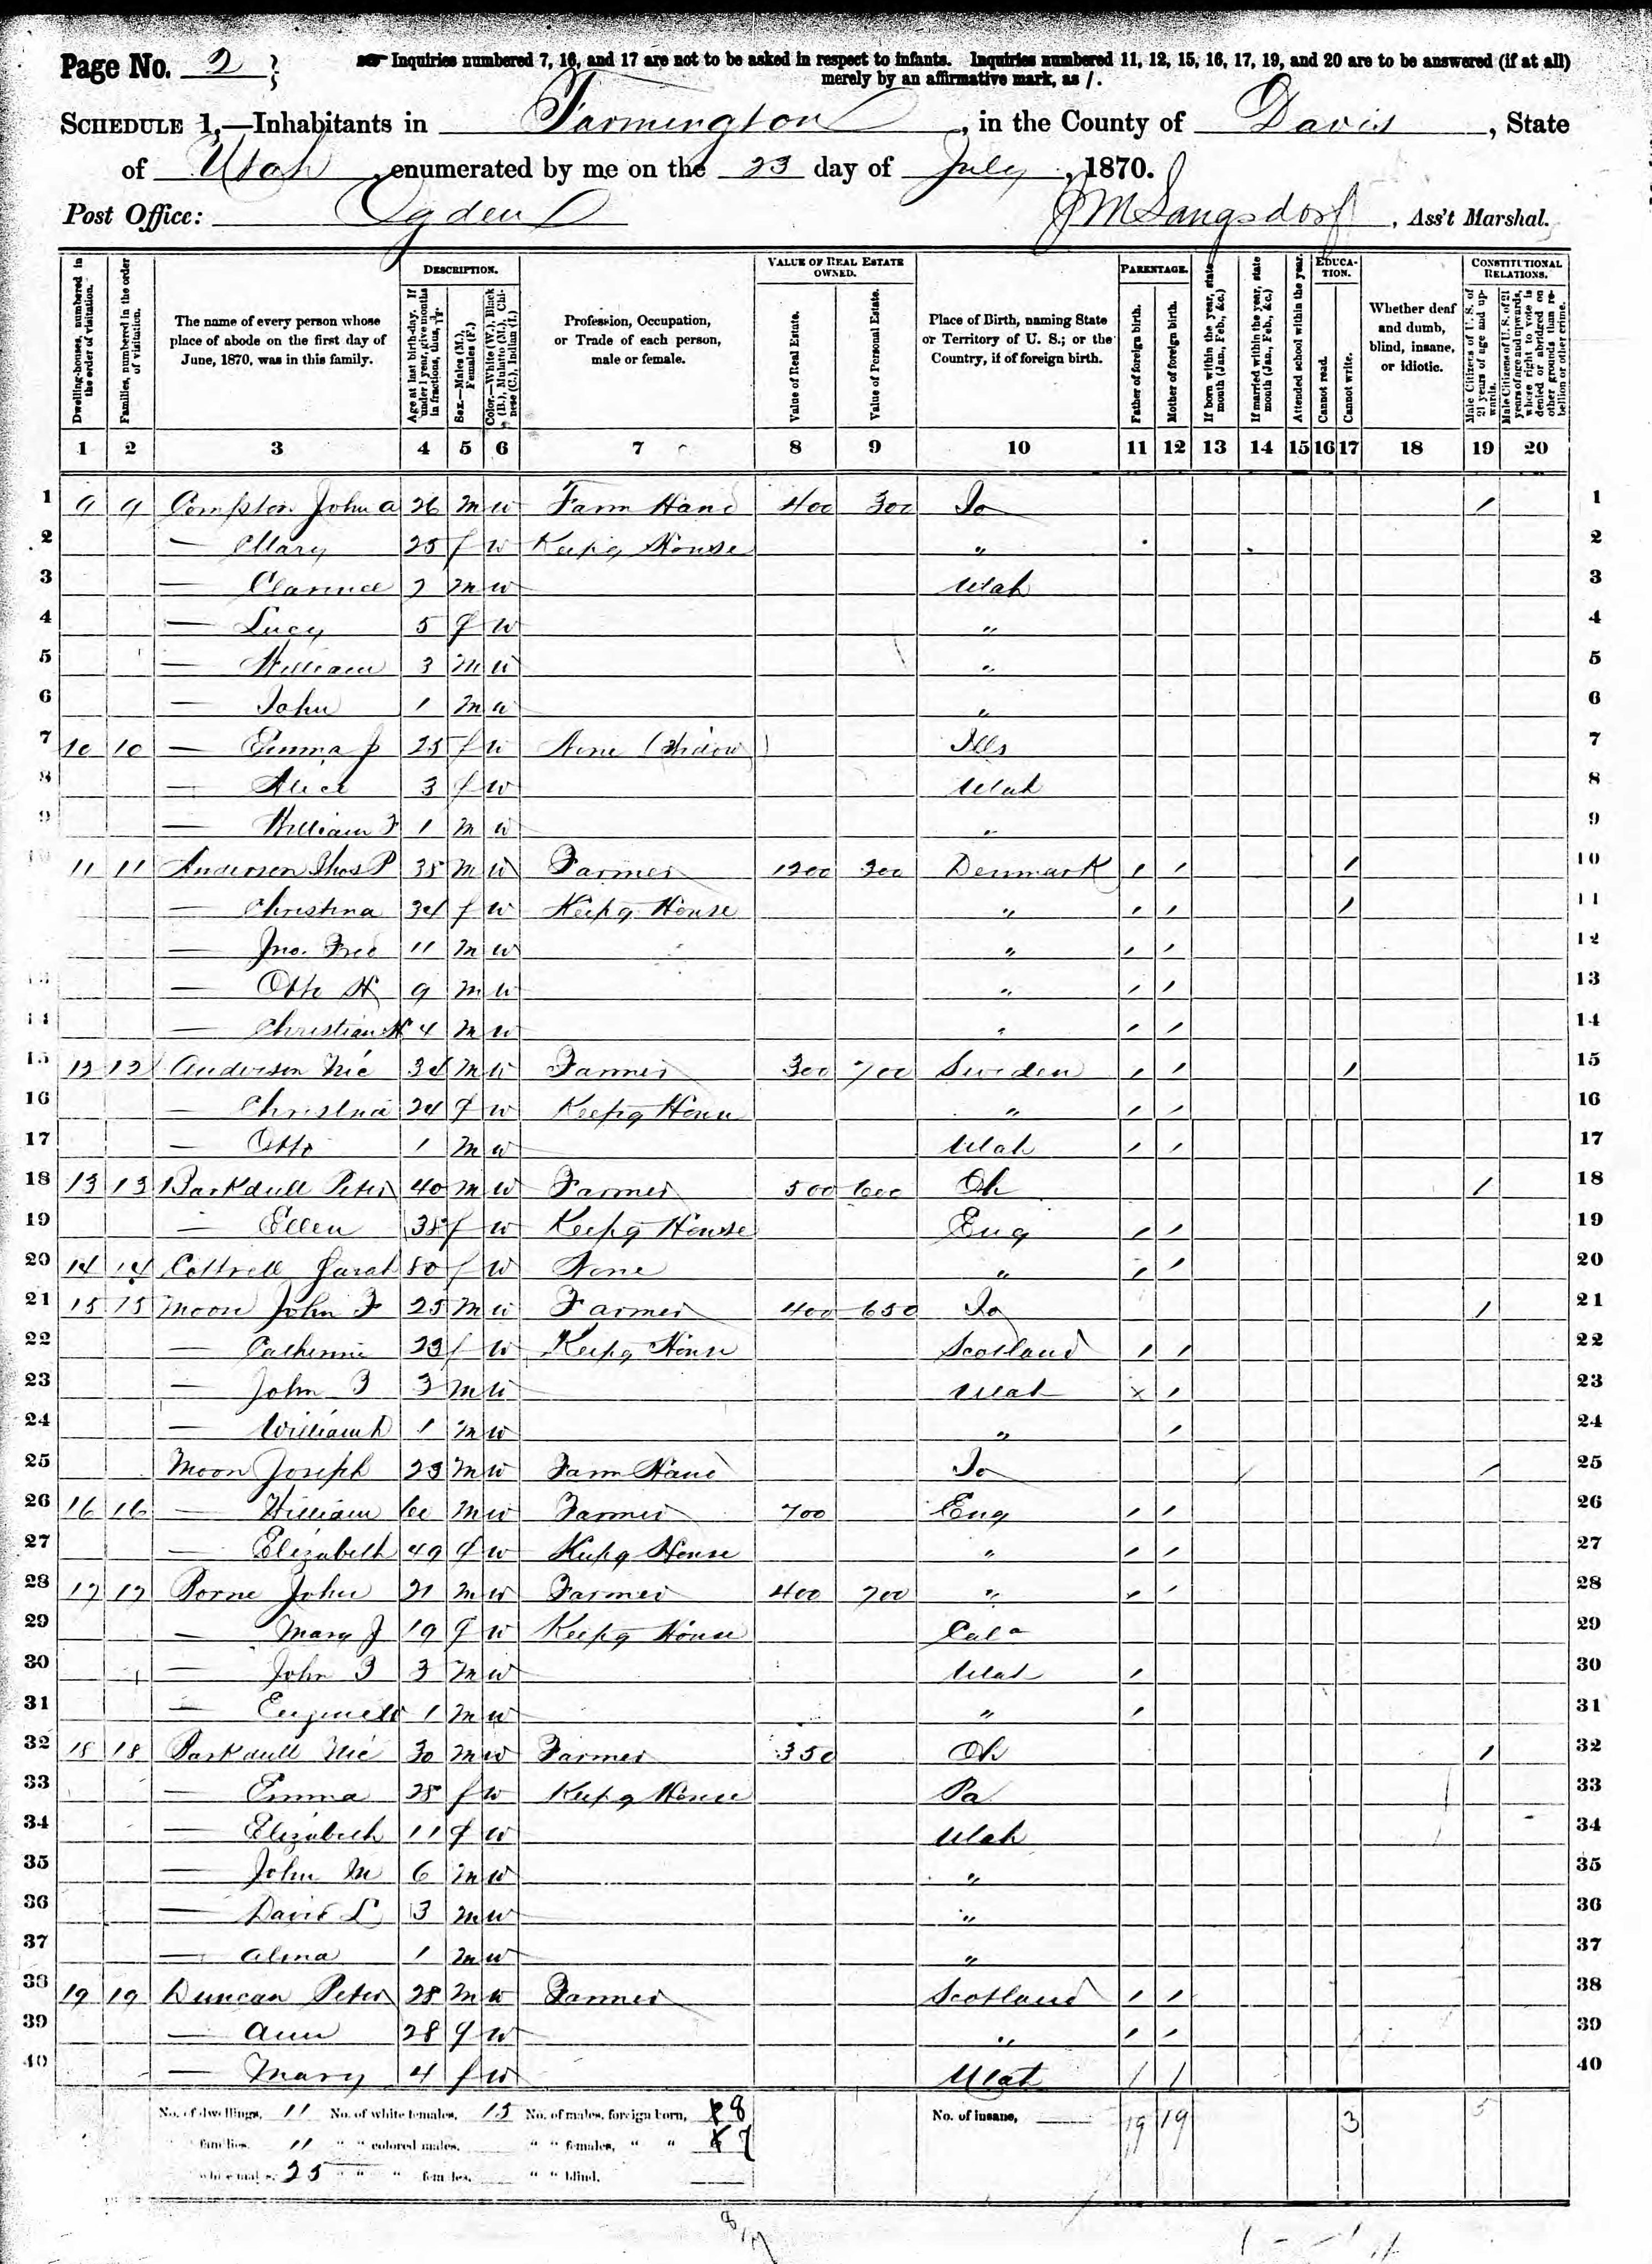 Page No. 2
Inquiries numbered 7, 16, and 17 are not to be asked in respect to infants. Inquiries numbered 11, 12, 15, 16, 17, 19, and 20 are to be answered (if at all)
merely by an affirmative mark, as /.
SCHEDULE 1.—Inhabitants in Farmington, in the County of Davis, State
of Utah, enumerated by me on the 23 day of July, 1870.
Post Office: Ogden J M Langsdorf, Ass't Marshal.
Dwelling-houses, numbered in the order of visitation.
Families, numbered in the order of visitation.
The name of every person whose place of abode on the first day of June, 1870, was in this family.
DESCRIPTION.
Age at last birth-day. If under 1 year, give months in fractions, thus,
Sex.—Males (M.), Females (F.)
Color.—White (W.), Black (B.), Mulatto (M.), Chinese (C.), Indian (I.)
Profession, Occupation, or Trade of each person, male or female.
VALUE OF REAL ESTATE OWNED.
Value of Real Estate.
Value of Personal Estate.
Place of Birth, naming State or Territory of U. S.; or the Country, if of foreign birth.
PARENTAGE.
Father of foreign birth.
Mother of foreign birth.
If born within the year, state month (Jan., Feb., &c.)
If married within the year, state month (Jan., Feb., &c.)
Attended school within the year.
EDUCATION.
Cannot read.
Cannot write.
Whether deaf and dumb, blind, insane, or idiotic.
CONSTITUTIONAL RELATIONS.
Male Citizens of U. S. of 21 years of age and upwards.
Male Citizens of U. S. of 21 years of age and upwards, where right to vote is denied or abridged on other grounds than rebellion or other crime.
1 2 3 4 5 6 7 8 9 10 11 12 13 14 15 16 17 18 19 20
1 9 9 Compton John A 26 M W Farm Hand 400 300 Io / 1
2 — Mary 25 f W Keepg House " 2
3 — Clarence 7 M W Utah 3
4 — Lucy 5 f W " 4
5 — William 3 M W " 5
6 — John 1 M W " 6
7 10 10 — Emma J 25 f W None (Widow) Ills 7
8 — Alice 3 f W Utah 8
9 — William F 1 M W " 9
10 11 11 Andersen Thos P 35 M W Farmer 1200 300 Denmark / / / 10
11 — Christina 34 f W Keepg House " / / / 11
— Jno. Fred 11 M W " / / 12
13 — Otto H 9 M W " / / 13
14 — Christian H 4 M W " / / 14
15 12 12 Anderson Nic 34 M W Farmer 300 700 Sweden / / / 15
16 — Christina 24 f W Keepg House " / / 16
17 — Otto 1 M W Utah / / 17
18 13 13 Barkdull Peter 40 M W Farmer 500 600 Oh / 18
19 — Ellen 38 f W Keepg House Eng / / 19
20 14 14 Cottrell Sarah 80 f W None " / / 20
21 15 15 Moon John F 25 M W Farmer 400 650 Io / 21
22 — Catherine 23 f W Keepg House Scotland / / 22
23 — John F 3 M W Utah x / 23
24 — William D 1 M W " / 24
25 Moon Joseph 23 M W Farm Hand Io / 25
26 16 16 — William 60 M W Farmer 700 Eng / / 26
27 — Elizabeth 49 f W Keepg House " / / 27
28 17 17 Porne John 21 M W Farmer 400 700 " / / 28
29 — Mary J 19 f W Keepg House Cala 29
30 — John F 3 M W Utah / 30
31 — 1 M W " / 31
32 18 18 Barkdull Nic 30 M W Farmer 350 Oh / 32
33 — Emma 28 f W Keepg House Pa 33
34 — Elizabeth 11 f W Utah 34
35 — John M 6 M W " 35
36 — David L 3 M W " 36
37 — Alma 1 M W " 37
38 19 19 Duncan Peter 28 M W Farmer Scotland / / 38
39 — Ann 28 f W " / / 39
40 — Mary 4 f W Utah / / 40
No. of dwellings, 11 No. of white females, 15 No. of males, foreign born, 8 No. of insane, — 19 19 3 5
" families, 11 " " colored males, " " females, " " 7
" white males, 25 " " " females, " " blind,
8/7